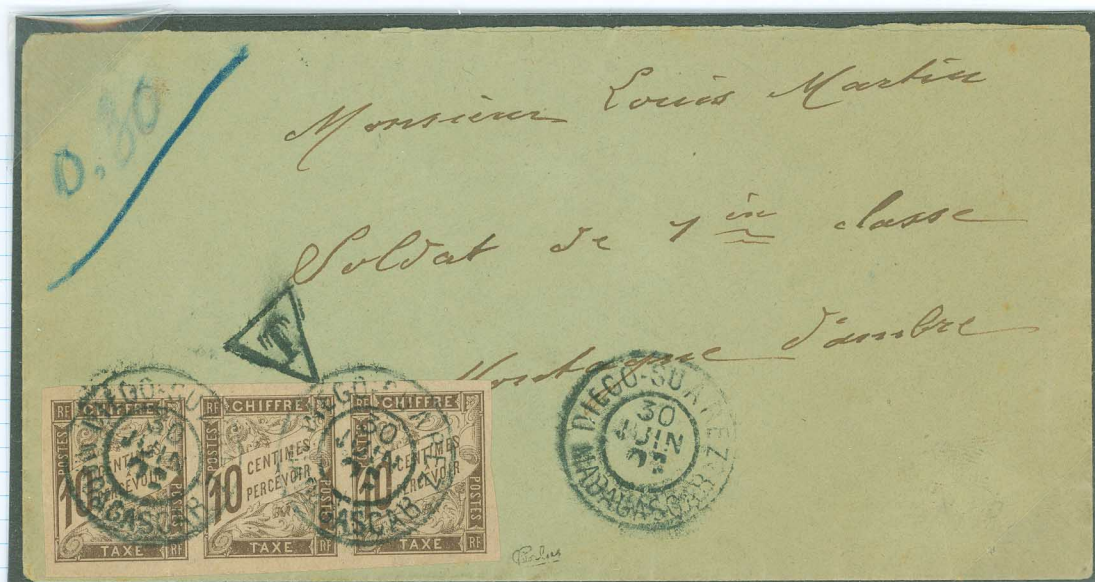 0,30
Monsieur Louis Martin
Soldat de 1 in classe
Montagne d'ambre
T
DIEGO-SUAREZ
30
JUIN
MADAGASCAR
RF CHIFFRE
POSTES
10 CENTIMES
PERCEVOIR
TAXE RF
CHIFFRE
POSTES
10 CENTIMES
À PERCEVOIR
POSTES
TAXE RF
RF CHIFFRE
10 CENTIMES
À PERCEVOIR
POSTES
TAXE RF